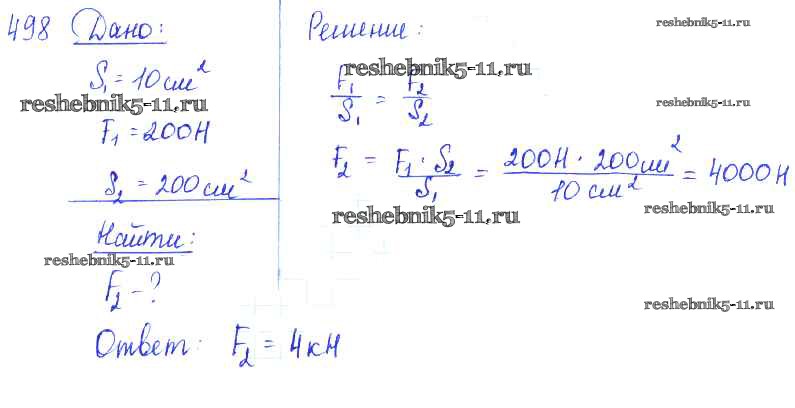 498 Дано:
S₁ = 10 см²
reshebnik5-11.ru
F₁ = 200Н
S₂ = 200 см²
Найти:
reshebnik5-11.ru
F₂ - ?
Решение:
reshebnik5-11.ru
reshebnik5-11.ru
F₁/S₁ = F₂/S₂
reshebnik5-11.ru
F₂ = F₁ · S₂/S₁ = 200Н · 200см²/10 см² = 4000Н
reshebnik5-11.ru
reshebnik5-11.ru
reshebnik5-11.ru
Ответ: F₂ = 4кН